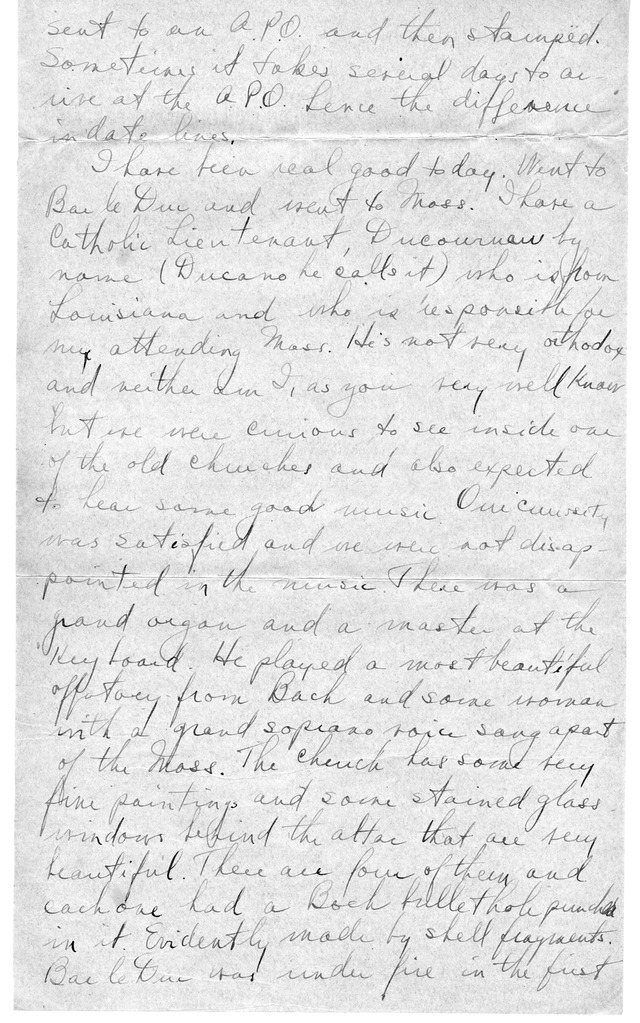 sent to an A.P.O. and then stamped.
Sometimes it takes several days to ar-
rive at the A.P.O. hence the difference
in date lines.
I have been real good today. Went to
Bar le Duc and went to Mass. I have a
Catholic Lieutenant, Ducournau by
name (Ducano he calls it) who is from
Louisiana and who is responsible for
my attending Mass. He's not very orthodox
and neither am I, as you very well know
but we were curious to see inside one
of the old churches and also expected
to hear some good music. Our curiosity
was satisfied and we were not disap-
pointed in the music. There was a
grand organ and a master at the
Keyboard. He played a most beautiful
offatory from Bach and some woman
with a grand soprano voice sang a part
of the Mass. The church has some very
fine paintings and some stained glass
windows behind the altar that are very
beautiful. There are four of them and
each one had a Boch bullet hole punched
in it. Evidently made by shell fragments.
Bar le Duc was under fire in the first